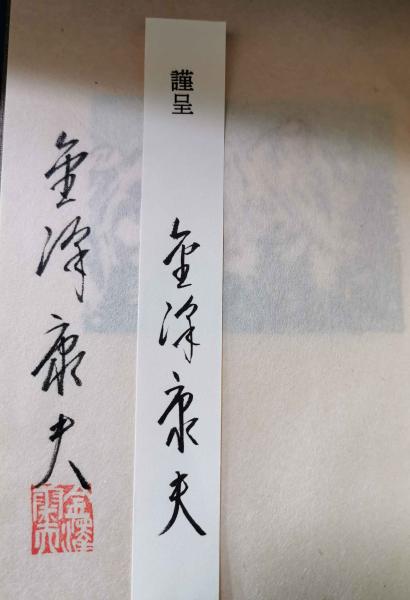 謹呈
金澤康夫
金澤康夫
金澤
康夫